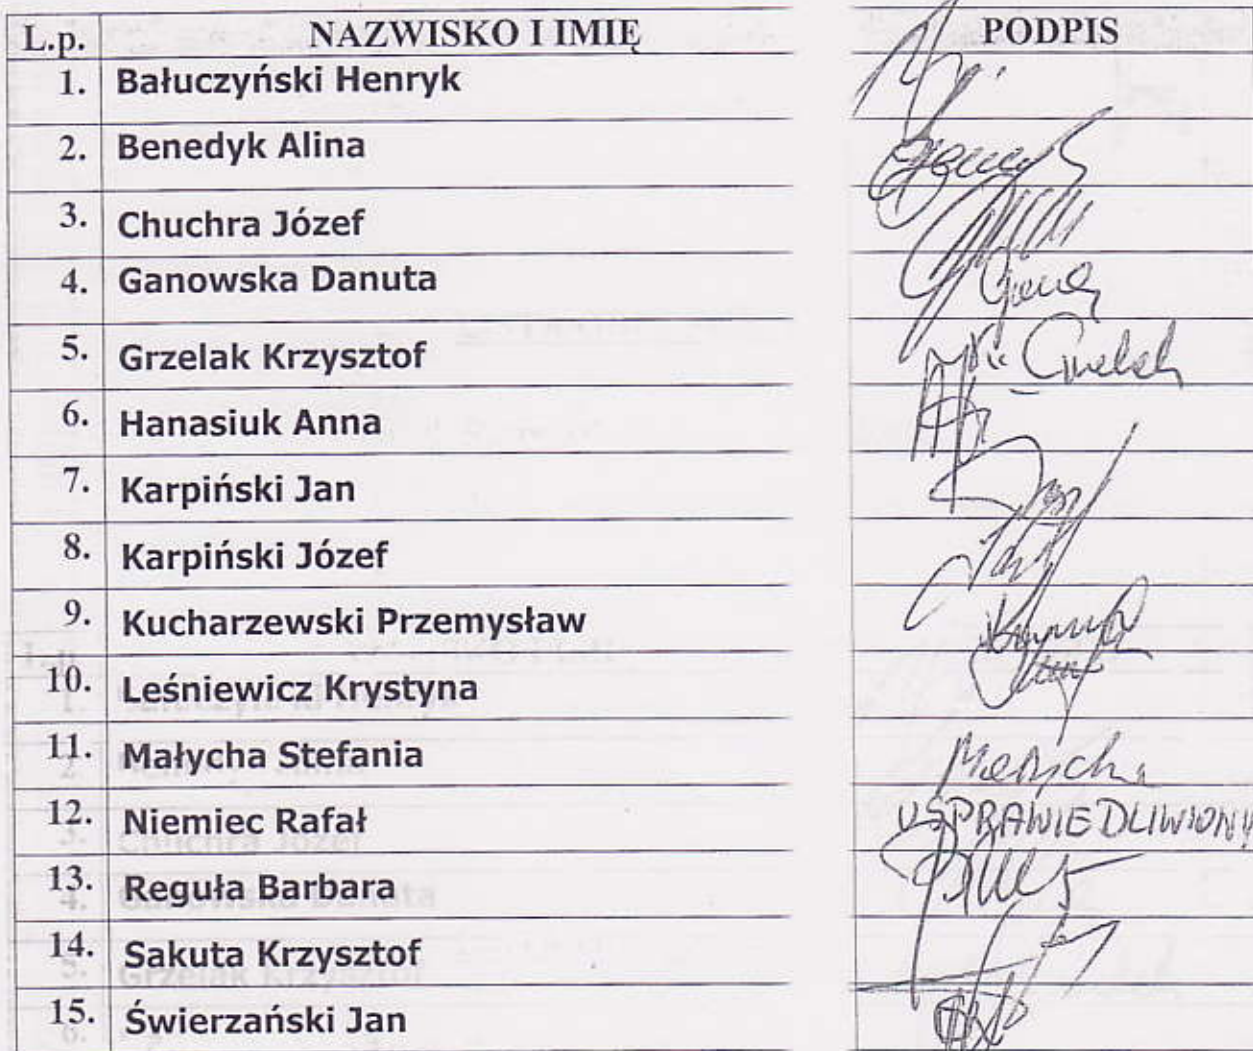 L.p. NAZWISKO I IMIĘ PODPIS
1. Bałuczyński Henryk
2. Benedyk Alina
3. Chuchra Józef
4. Ganowska Danuta
5. Grzelak Krzysztof
6. Hanasiuk Anna
7. Karpiński Jan
8. Karpiński Józef
9. Kucharzewski Przemysław
10. Leśniewicz Krystyna
11. Małycha Stefania Małycha
12. Niemiec Rafał USPRAWIEDLIWIONY
13. Reguła Barbara
14. Sakuta Krzysztof
15. Świerzański Jan